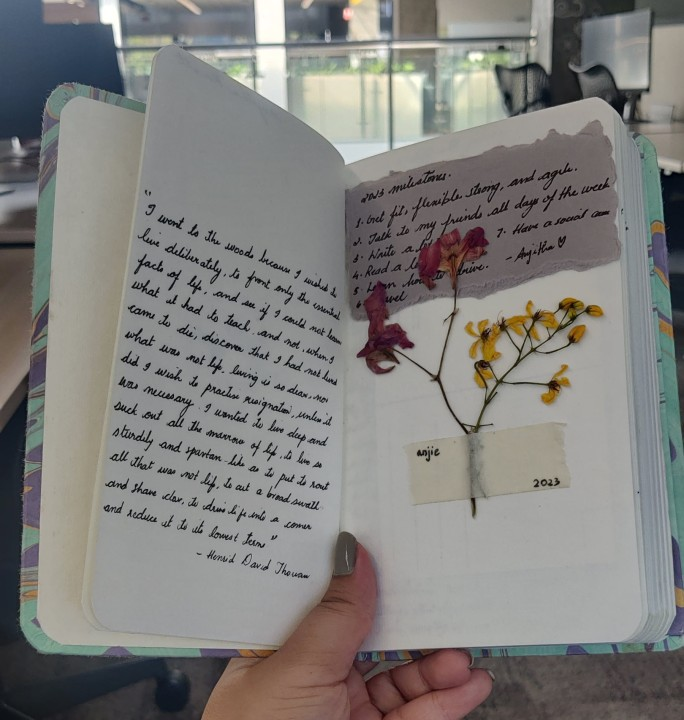 "I went to the woods because I wished to
live deliberately, to front only the essential
facts of life, and see if I could not learn
what it had to teach. and not, when I
came to die, discover that I had not lived
what was not life, living is so dear, nor
did I wish to practise resignation, unless it
was necessary. I wanted to live deep and
suck out all the marrow of life, to live so
sturdily and spartan-like as to put to rout
all that was not life, to cut a broad
and shave to drive life into a corner
and reduce it to its lowest term"
- David
2023 milestones.
1. Get fit, flexible strong, and agile.
2. Talk to my friends all days of the week
3. Write a
4. Read a
5. Learn how to drive.
6.
7. Have a social
- Anjitha ♡
anjie
2023